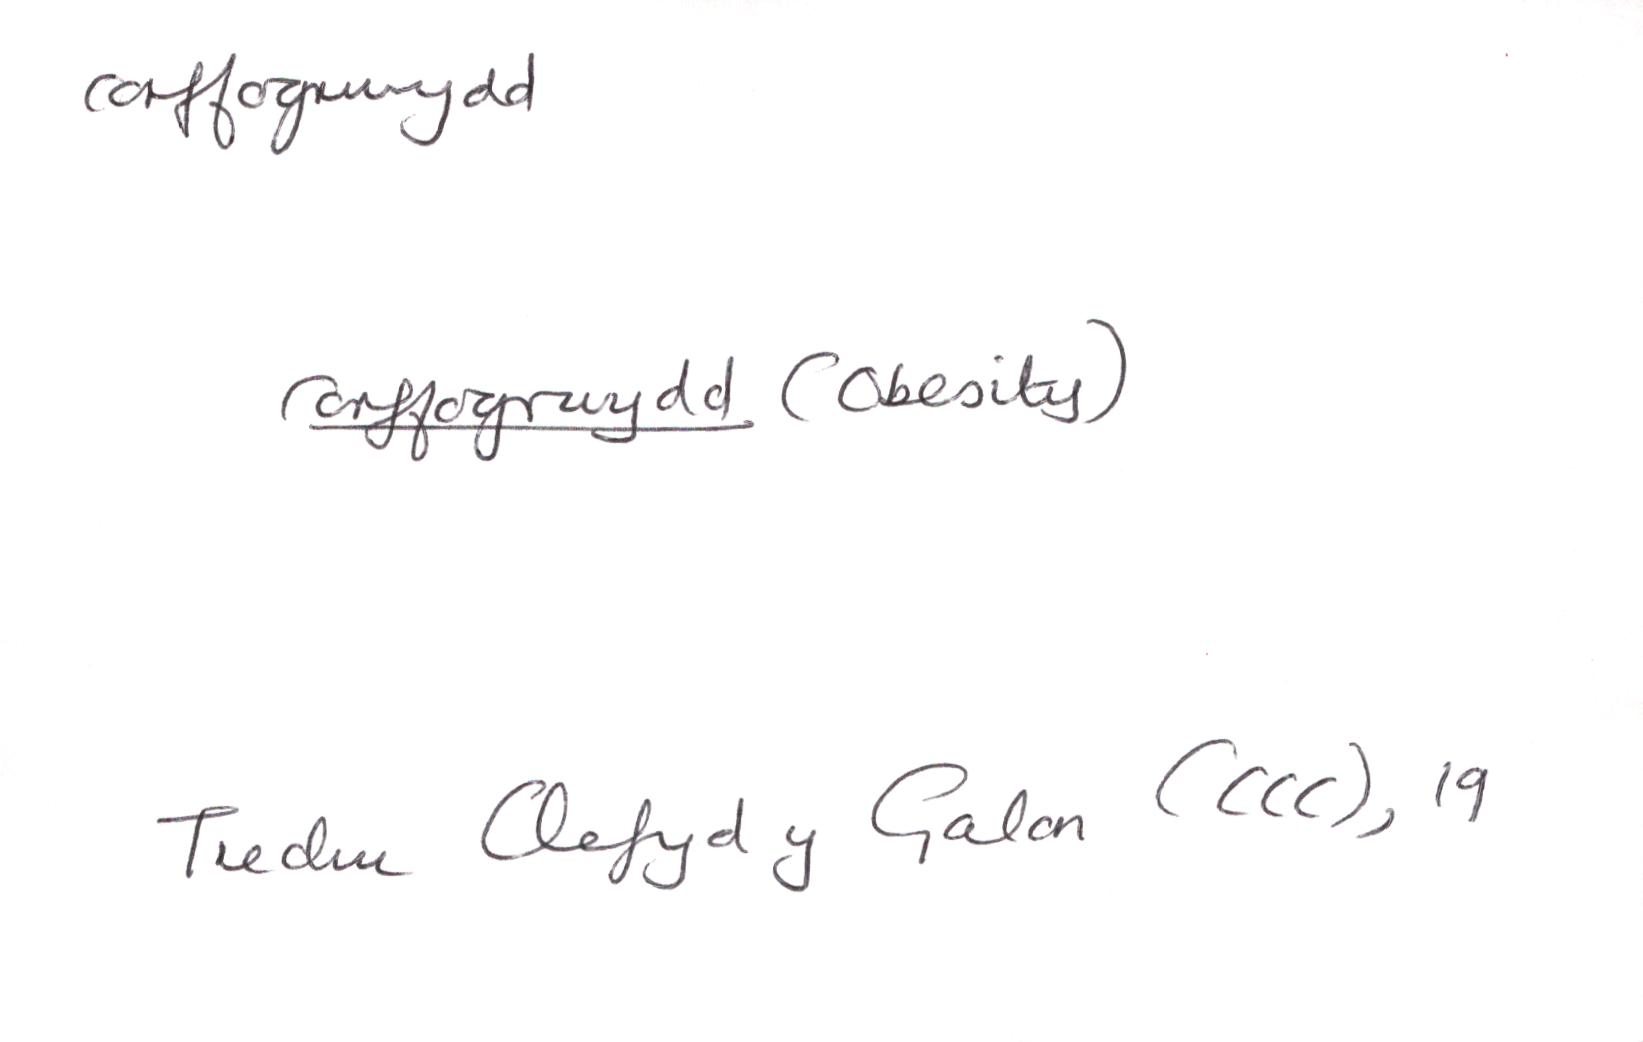 corffogrwydd
Corffogrwydd (Obesity)
Trechu Clefyd y Galon (CCC), 19